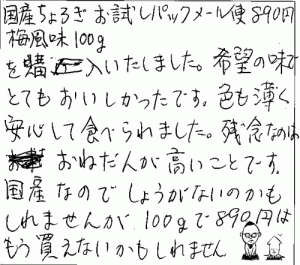 国産ちょろぎお試しパックメール便890円
梅風味100g
を購入いたしました。希望の味で
とてもおいしかったです。色も薄く、
安心して食べられました。残念なのは
おねだんが高いことです。
国産なのでしょうがないのかも
しれませんが、100gで890円は
もう買えないかもしれません